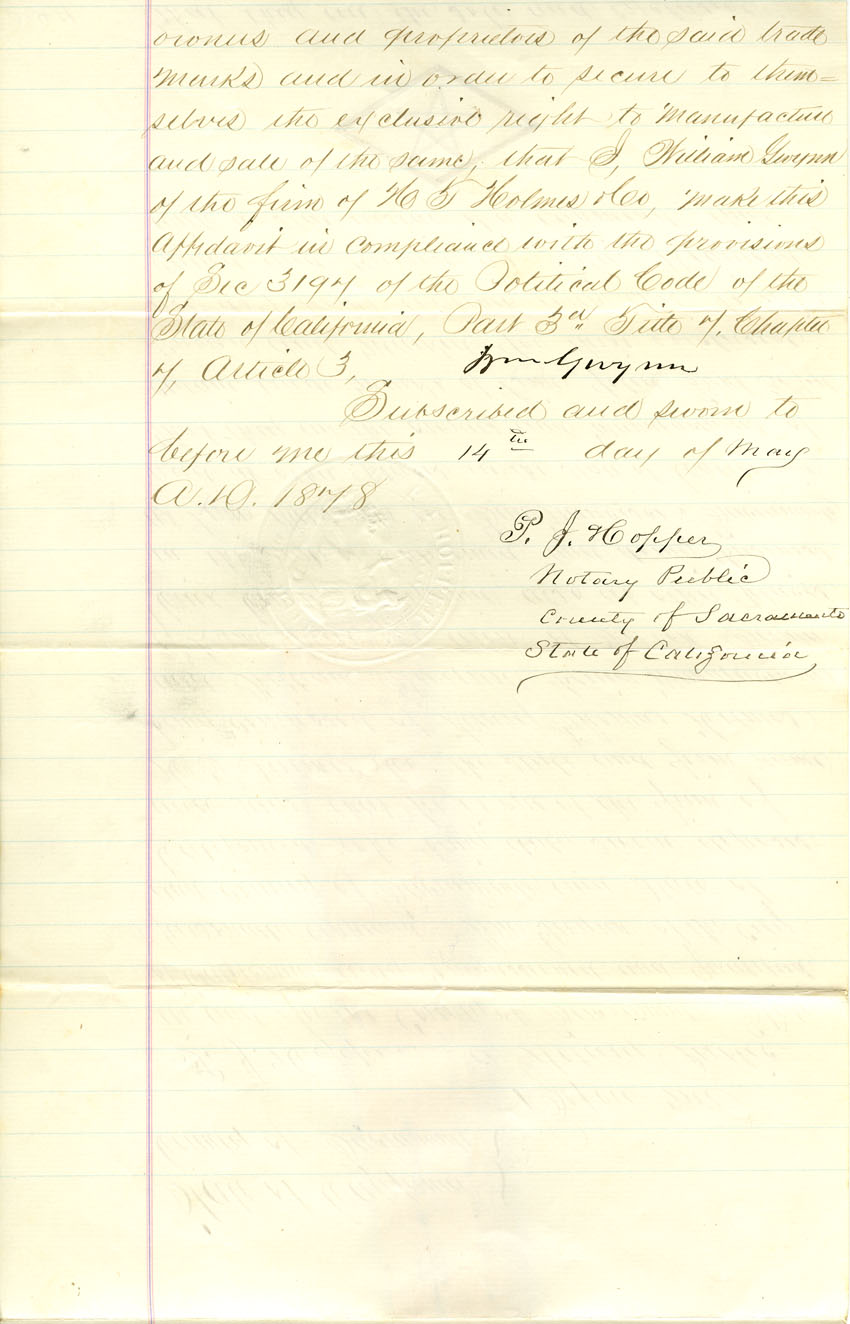 owners and proprietors of the said trade
marks and in order to secure to them=
selves the exclusive right to manufacture
and sale of the same, that I, William Gwynn
of the firm of H T Holmes & Co, make this
Affidavit in compliance with the provisions
of Sec 3197 of the Political Code of the
State of California, Part 3d. Title 7, Chapter
7, Article 3,
Wm Gwynn
Subscribed and sworn to
before me this 14th day of May
A.D. 1878
P. J. Hopper
Notary Public
County of Sacramento
State of California